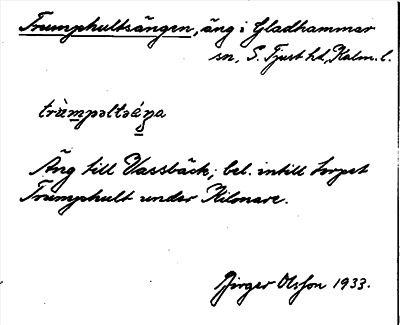 Trumphultsängen, äng i Gladhammar
sn, S. Tjust hd, Kalm. l.
trùmpəltəáŋa
Äng till Vassbäck; bel. intill torpet
Trumphult under Kilmare.
Birger Olsson 1933.